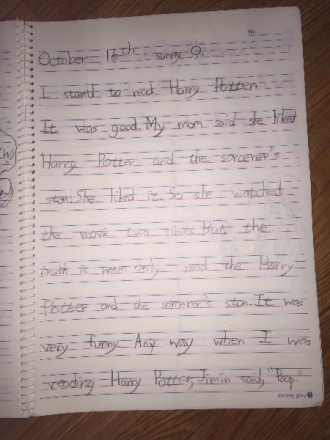 October 16th sunny
I startd to read Harry Potter.
It was good. My mom said she liked
Harry Potter and the sorcerer's
ston. She liked it. So she watched
the movie two times. But the
truth is mom only read the Harry
Potter and the sorcerer's ston. It was
very funny. Any way when I was
reading Harry Potter, Jimin said, "Poop."